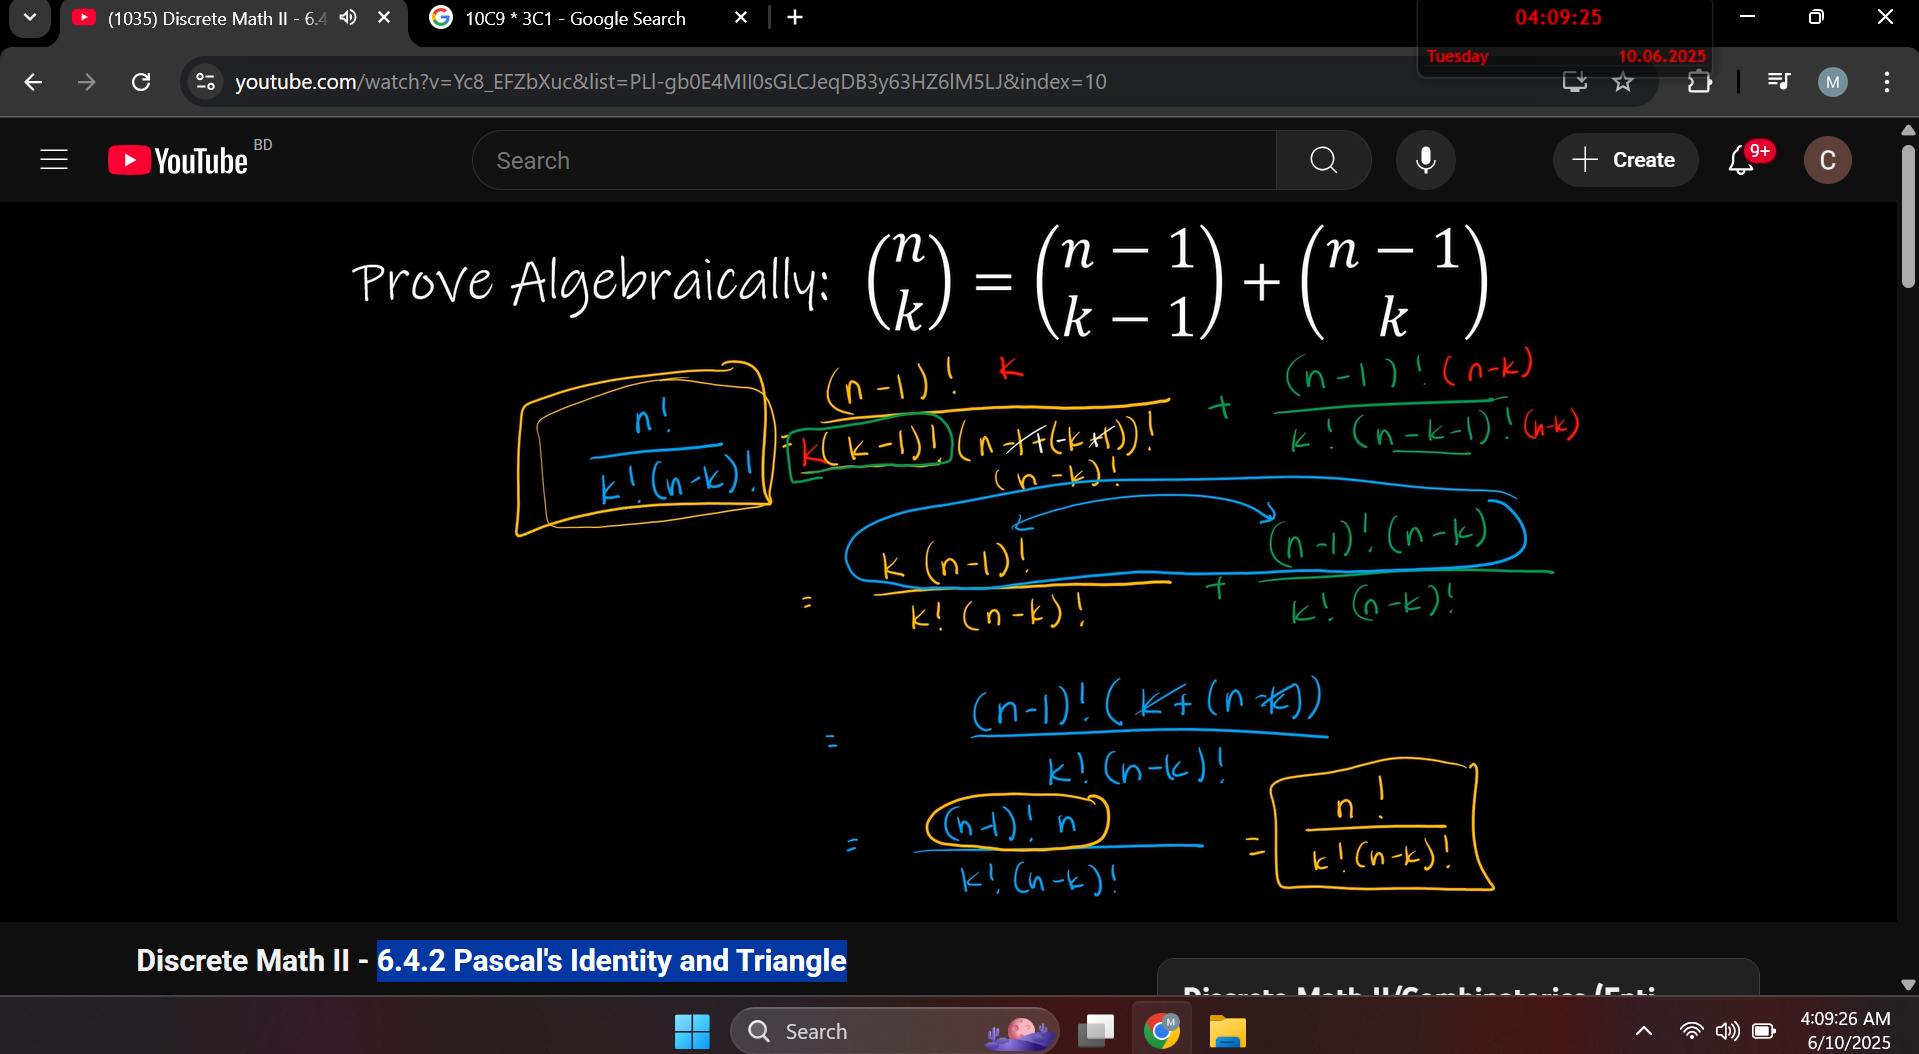 (1035) Discrete Math II - 6.4
10C9 * 3C1 - Google Search
04:09:25
Tuesday 10.06.2025
youtube.com/watch?v=Yc8_EFZbXuc&list=PLl-gb0E4MII0sGLCJeqDB3y63HZ6lM5LJ&index=10
M
YouTube BD
Search
Create
9+
C
Prove Algebraically: (n k) = (n − 1 k − 1) + (n − 1 k)
n! / k!(n-k)! = (n-1)! k / k(k-1)!(n-1+(-k+1))! + (n-1)!(n-k) / k!(n-k-1)!(n-k)
(n-k)!
= k(n-1)! / k!(n-k)! + (n-1)!(n-k) / k!(n-k)!
= (n-1)!(k+(n-k)) / k!(n-k)!
= (n-1)! n / k!(n-k)! = n! / k!(n-k)!
Discrete Math II - 6.4.2 Pascal's Identity and Triangle
Discrete Math II/Combinatorics (Enti
Search
M
4:09:26 AM
6/10/2025